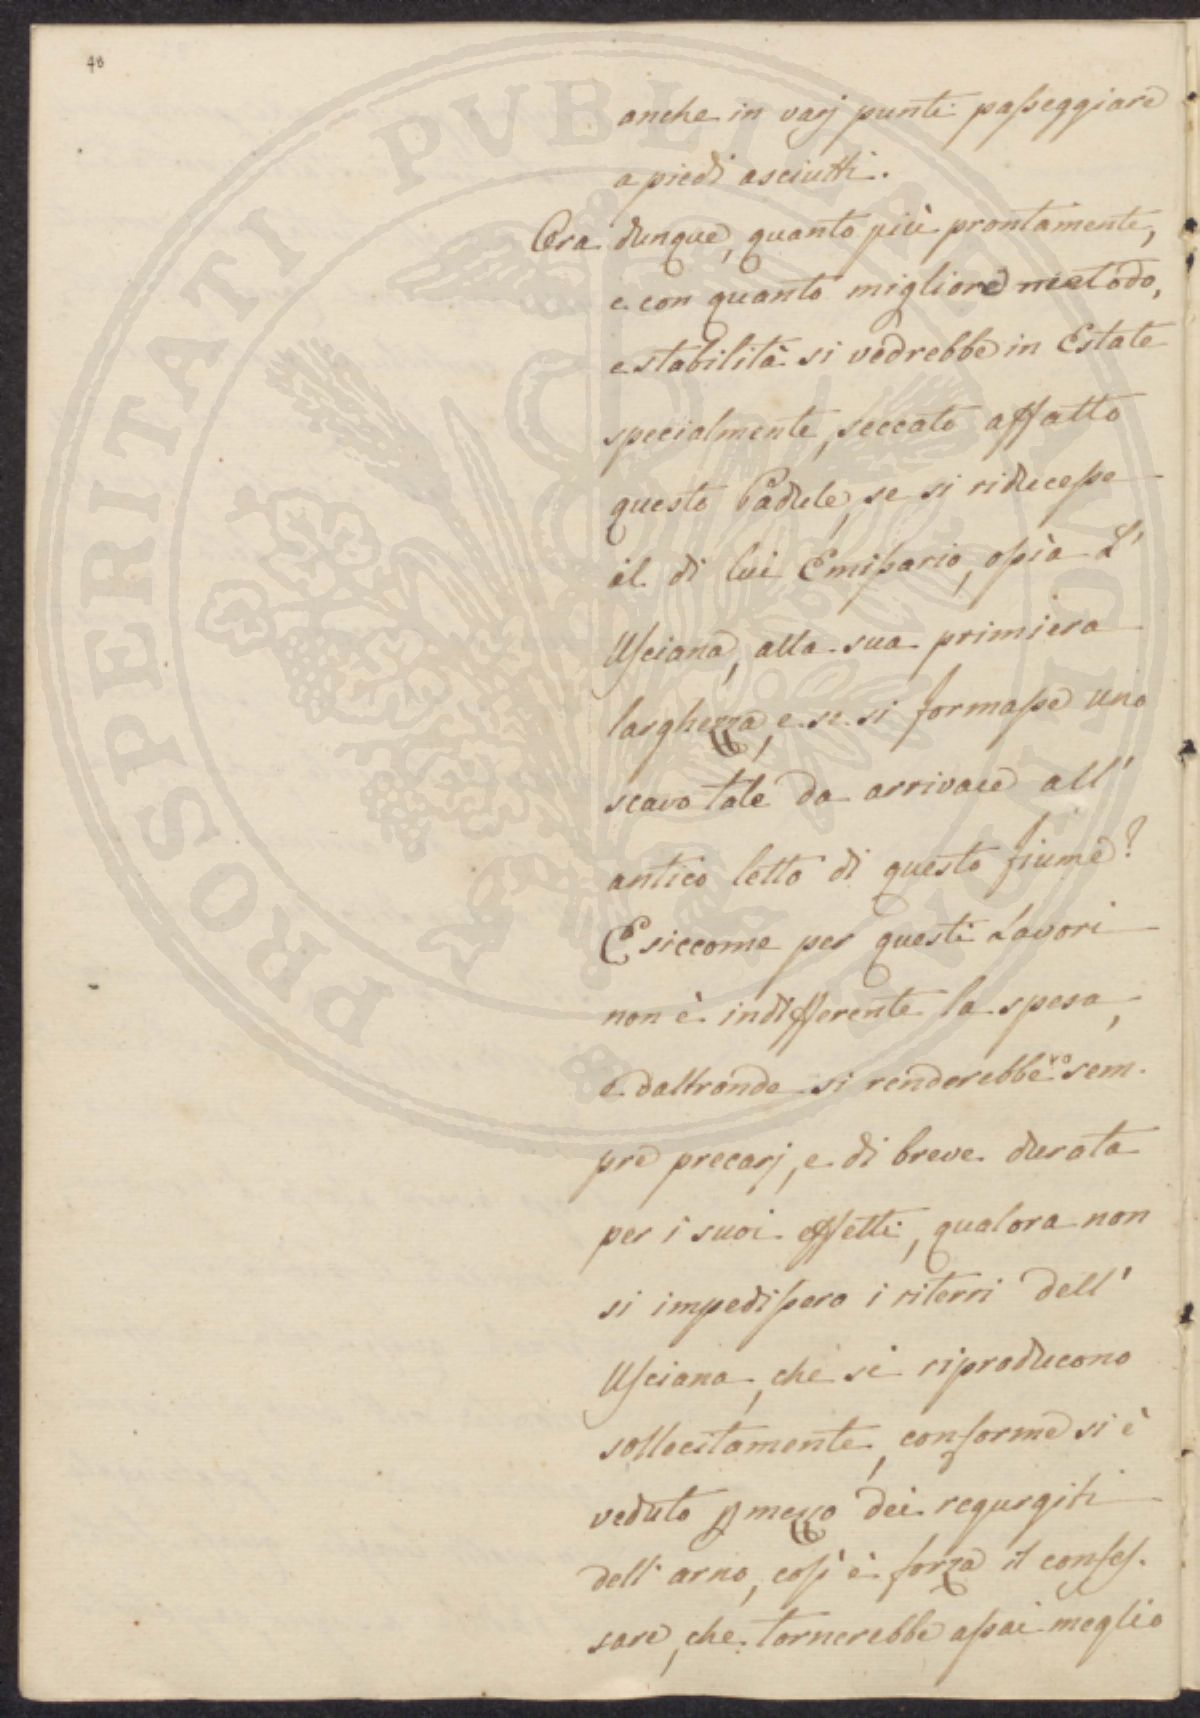 48
anche in varj punti passeggiare
a piedi asciutti.
Ora dunque, quanto più prontamente,
e con quanto migliore metodo,
e stabilità si vedrebbe in Estate
specialmente, seccato affatto
questo Padule, se si riducesse
il di lui Emissario, ossia L'
Usciana, alla sua primiera
larghezza, e se si formasse uno
scavo tale da arrivare all'
antico letto di questo fiume?
E siccome per questi Lavori
non è indifferente la spesa,
e daltronde si renderebbero sem-
pre precarj, e di breve durata
per i suoi effetti, qualora non
si impedissero i riterri dell'
Usciana, che si riproducono
sollecitamente, conforme si è
veduto p mezzo dei regurgiti
dell'arno, così è forza il confes-
sare, che tornerebbe assai meglio
PROSPERITATI PVBLICAE